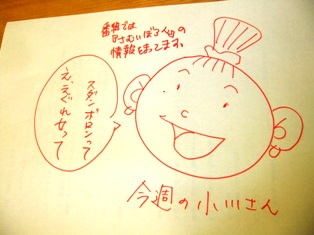 番組では
「さむいぼる人」の
情報を待ってます。
スダンボロンって
え、えぐれせって
今週の小川さん